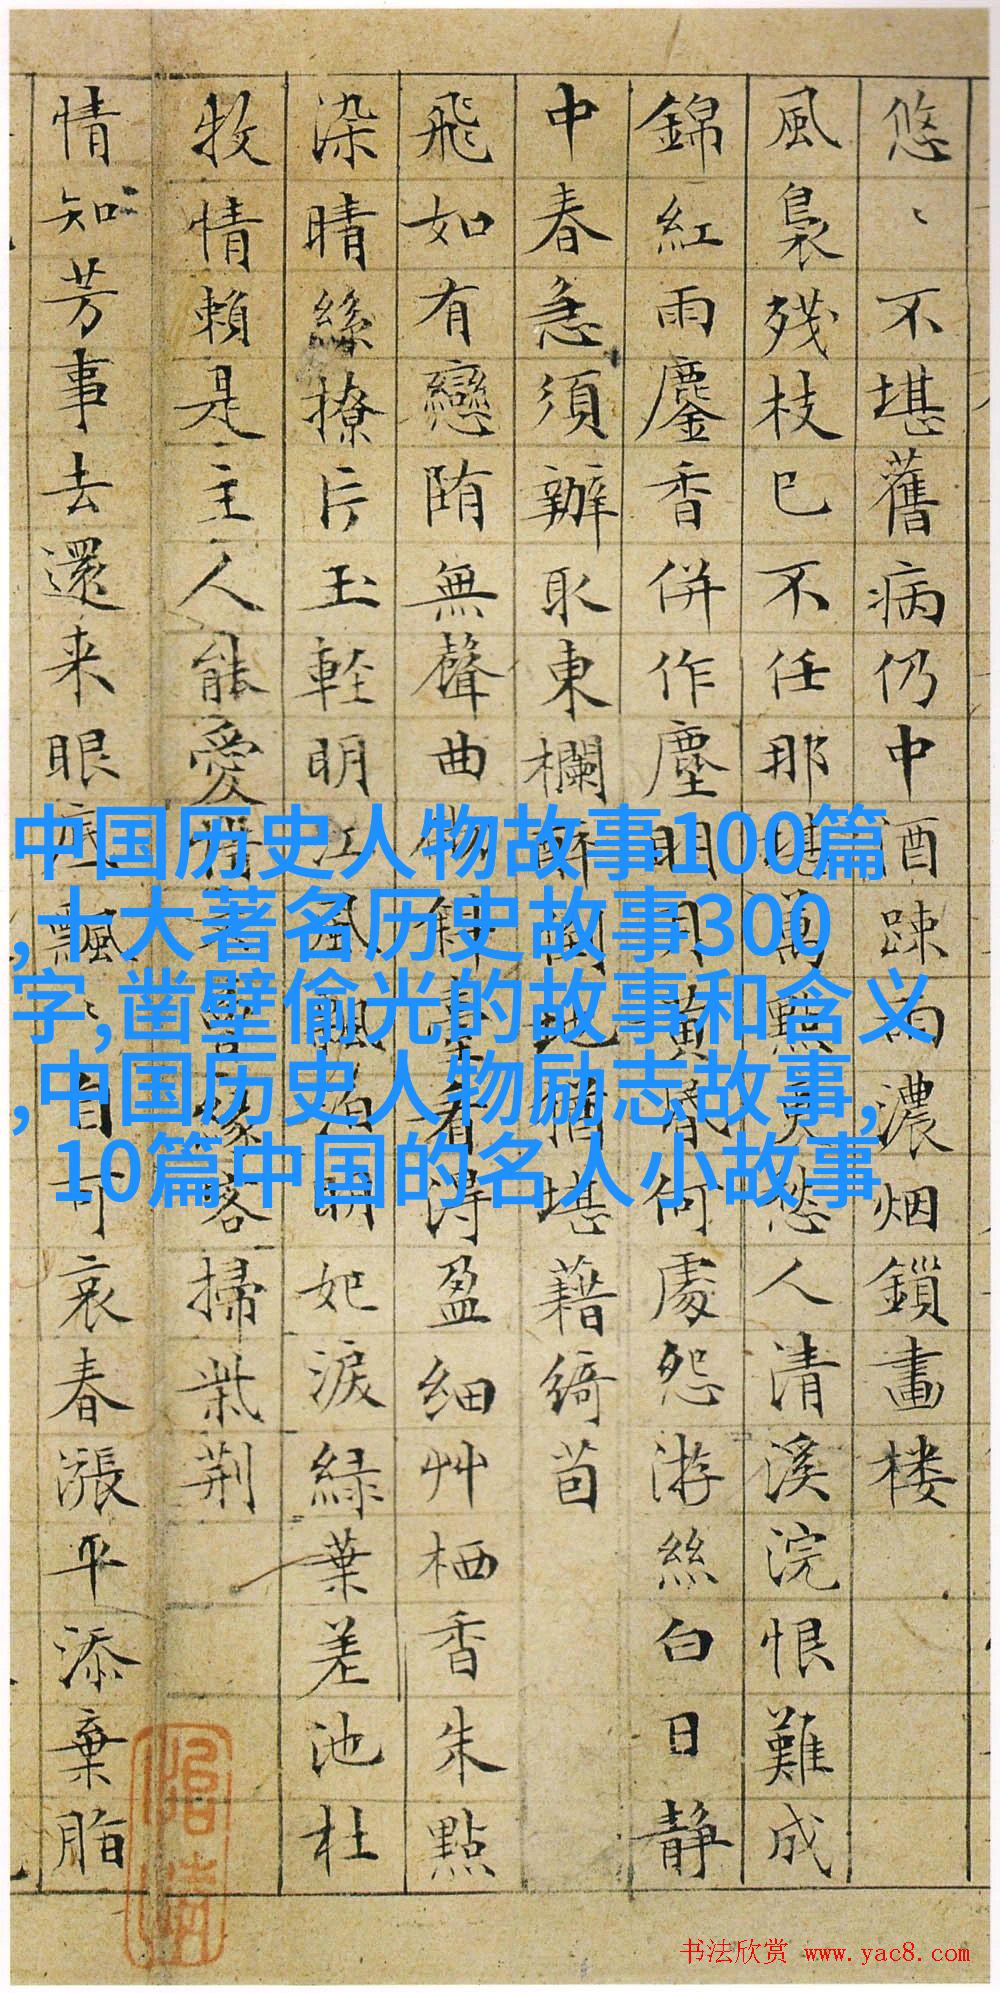 悠ヽ不堪舊病仍中酒踈雨濃烟鎖畫楼
風裊残枝已不任那堪萬點更愁人清溪浣恨難成
錦紅雨鏖香併作塵明月黄昏何處怨游絲白日静
中春急須辦取東欄醉地猶堪藉綺茵
飛如有戀墮無聲曲斜臺看得盈細艸栖香朱點
染晴絲撩片玉軽明江風飄泊明妃淚緑葉差池杜
牧情賴是主人能愛惜曾緣客掃柴荆
情知芳事去還来眼底飄ヽ自可哀春漲平添棄脂
中国历史人物故事100篇
,十大著名历史故事300
字,凿壁偷光的故事和含义
,中国历史人物励志故事,
10篇中国的名人小故事
书法欣赏 www.yac8.com